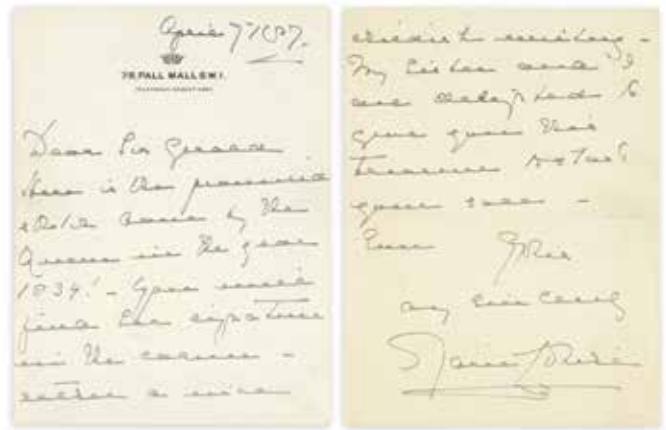 April 7th 1937.
78, PALL MALL S.W.1.
Dear Sir
Here is the promised
done by the
Queen in the year
1834! - You will
find her signature
in the corner -
rather a nice
- 
My Sister and I
are delighted to
give you this
treasure
-
Ever Yrs
very sincerely
Marie Louise